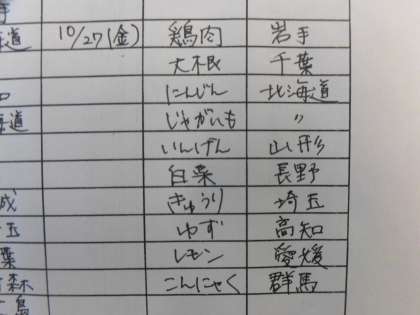 道 10/27(金) 鶏肉 岩手
大根 千葉
にんじん 北海道
道 じゃがいも 〃
いんげん 山形
白菜 長野
成 きゅうり 埼玉
玉 ゆず 高知
葉 レモン 愛媛
森 こんにゃく 群馬
島